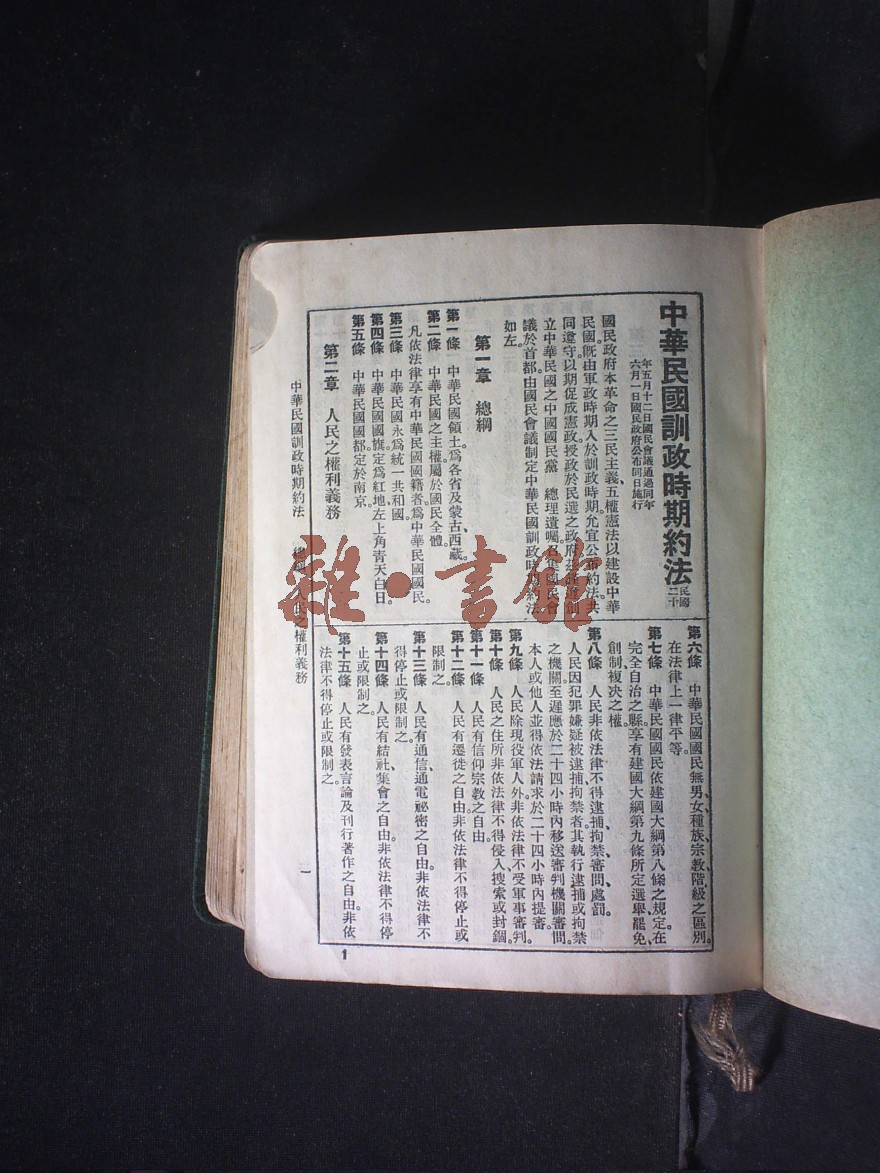 中華民國訓政時期約法 民國二十
年五月十二日國民會議通過同年
六月一日國民政府公布同日施行
國民政府本革命之三民主義、五權憲法以建設中華
民國旣由軍政時期入於訓政時期允宜公布約法共
同遵守以期促成憲政授政於民選之政府
立中華民國之中國國民黨 總理遺囑召集國民會
議於首都由國民會議制定中華民國訓政時期約法
如左
第一章 總綱
第一條 中華民國領土爲各省及蒙古西藏。
第二條 中華民國之主權屬於國民全體。
凡依法律享有中華民國國籍者爲中華民國國民
第三條 中華民國永爲統一共和國。
第四條 中華民國國旗定爲紅地左上角靑天白日。
第五條 中華民國國都定於南京。
第二章 人民之權利義務
第六條 中華民國國民無男女、種族、宗敎、階級之區別。
在法律上一律平等。
第七條 中華民國國民依建國大綱第八條之規定在
完全自治之縣享有建國大綱第九條所定選舉、罷免、
創制、複決之權。
第八條 人民非依法律不得逮捕、拘禁、審問、處罰。
人民因犯罪嫌疑被逮捕拘禁者其執行逮捕或拘禁
之機關至遲應於二十四小時內移送審判機關審問。
本人或他人並得依法請求於二十四小時內提審。
第九條 人民除現役軍人外非依法律不受軍事審判。
第十條 人民之住所非依法律不得侵入、搜索或封錮。
第十一條 人民有信仰宗敎之自由。
第十二條 人民有遷徙之自由非依法律不得停止或
限制之。
第十三條 人民有通信通電祕密之自由非依法律不
得停止或限制之。
第十四條 人民有結社、集會之自由非依法律不得停
止或限制之。
第十五條 人民有發表言論及刊行著作之自由非依
法律不得停止或限制之。
中華民國訓政時期約法 人民之權利義務
一
1
雜·書館